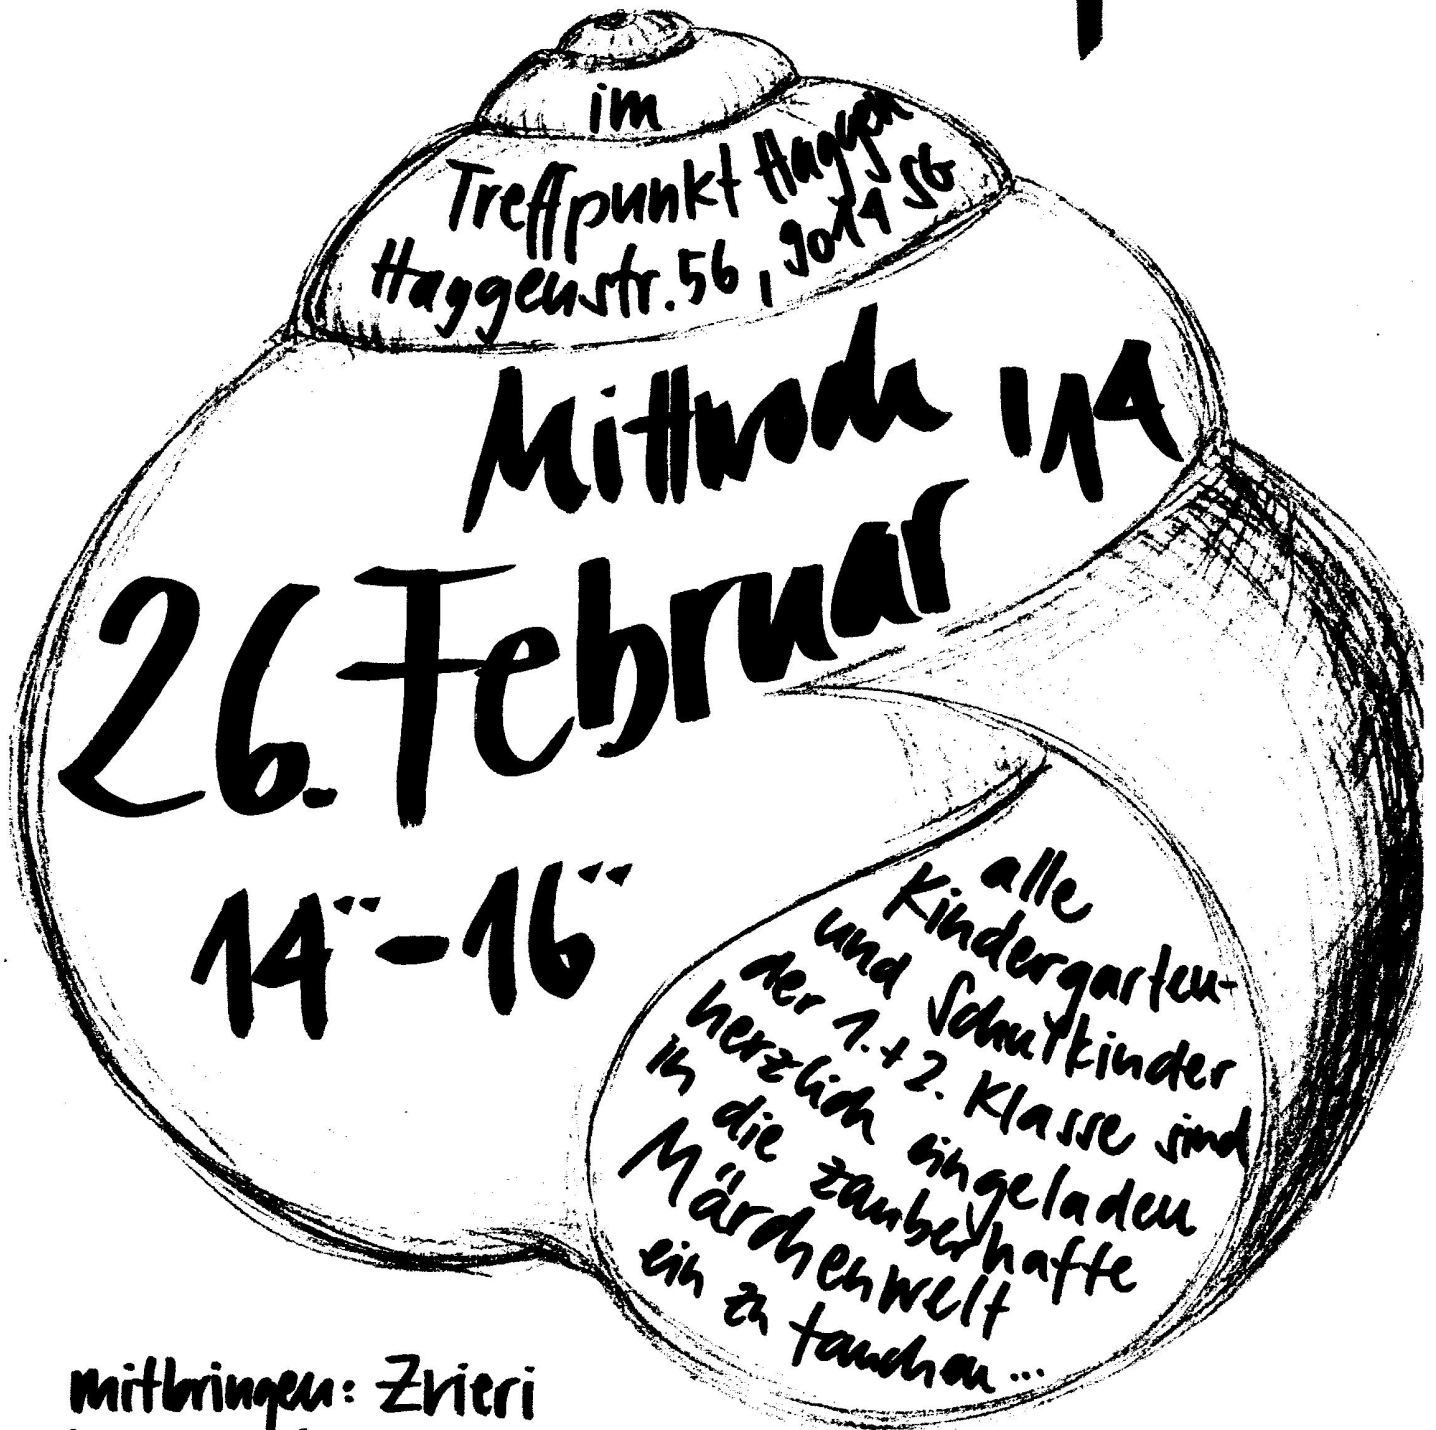 im
Treffpunkt Haggen
Haggenstr. 56, 9014 SG
Mittwoch 114
26. Februar
14°° - 16°°
alle
Kindergarten-
und Schulkinder
der 1. + 2. Klasse sind
herzlich eingeladen
in die zauberhafte
Märchenwelt
ein zu tauchen...
mitbringen: Zvieri